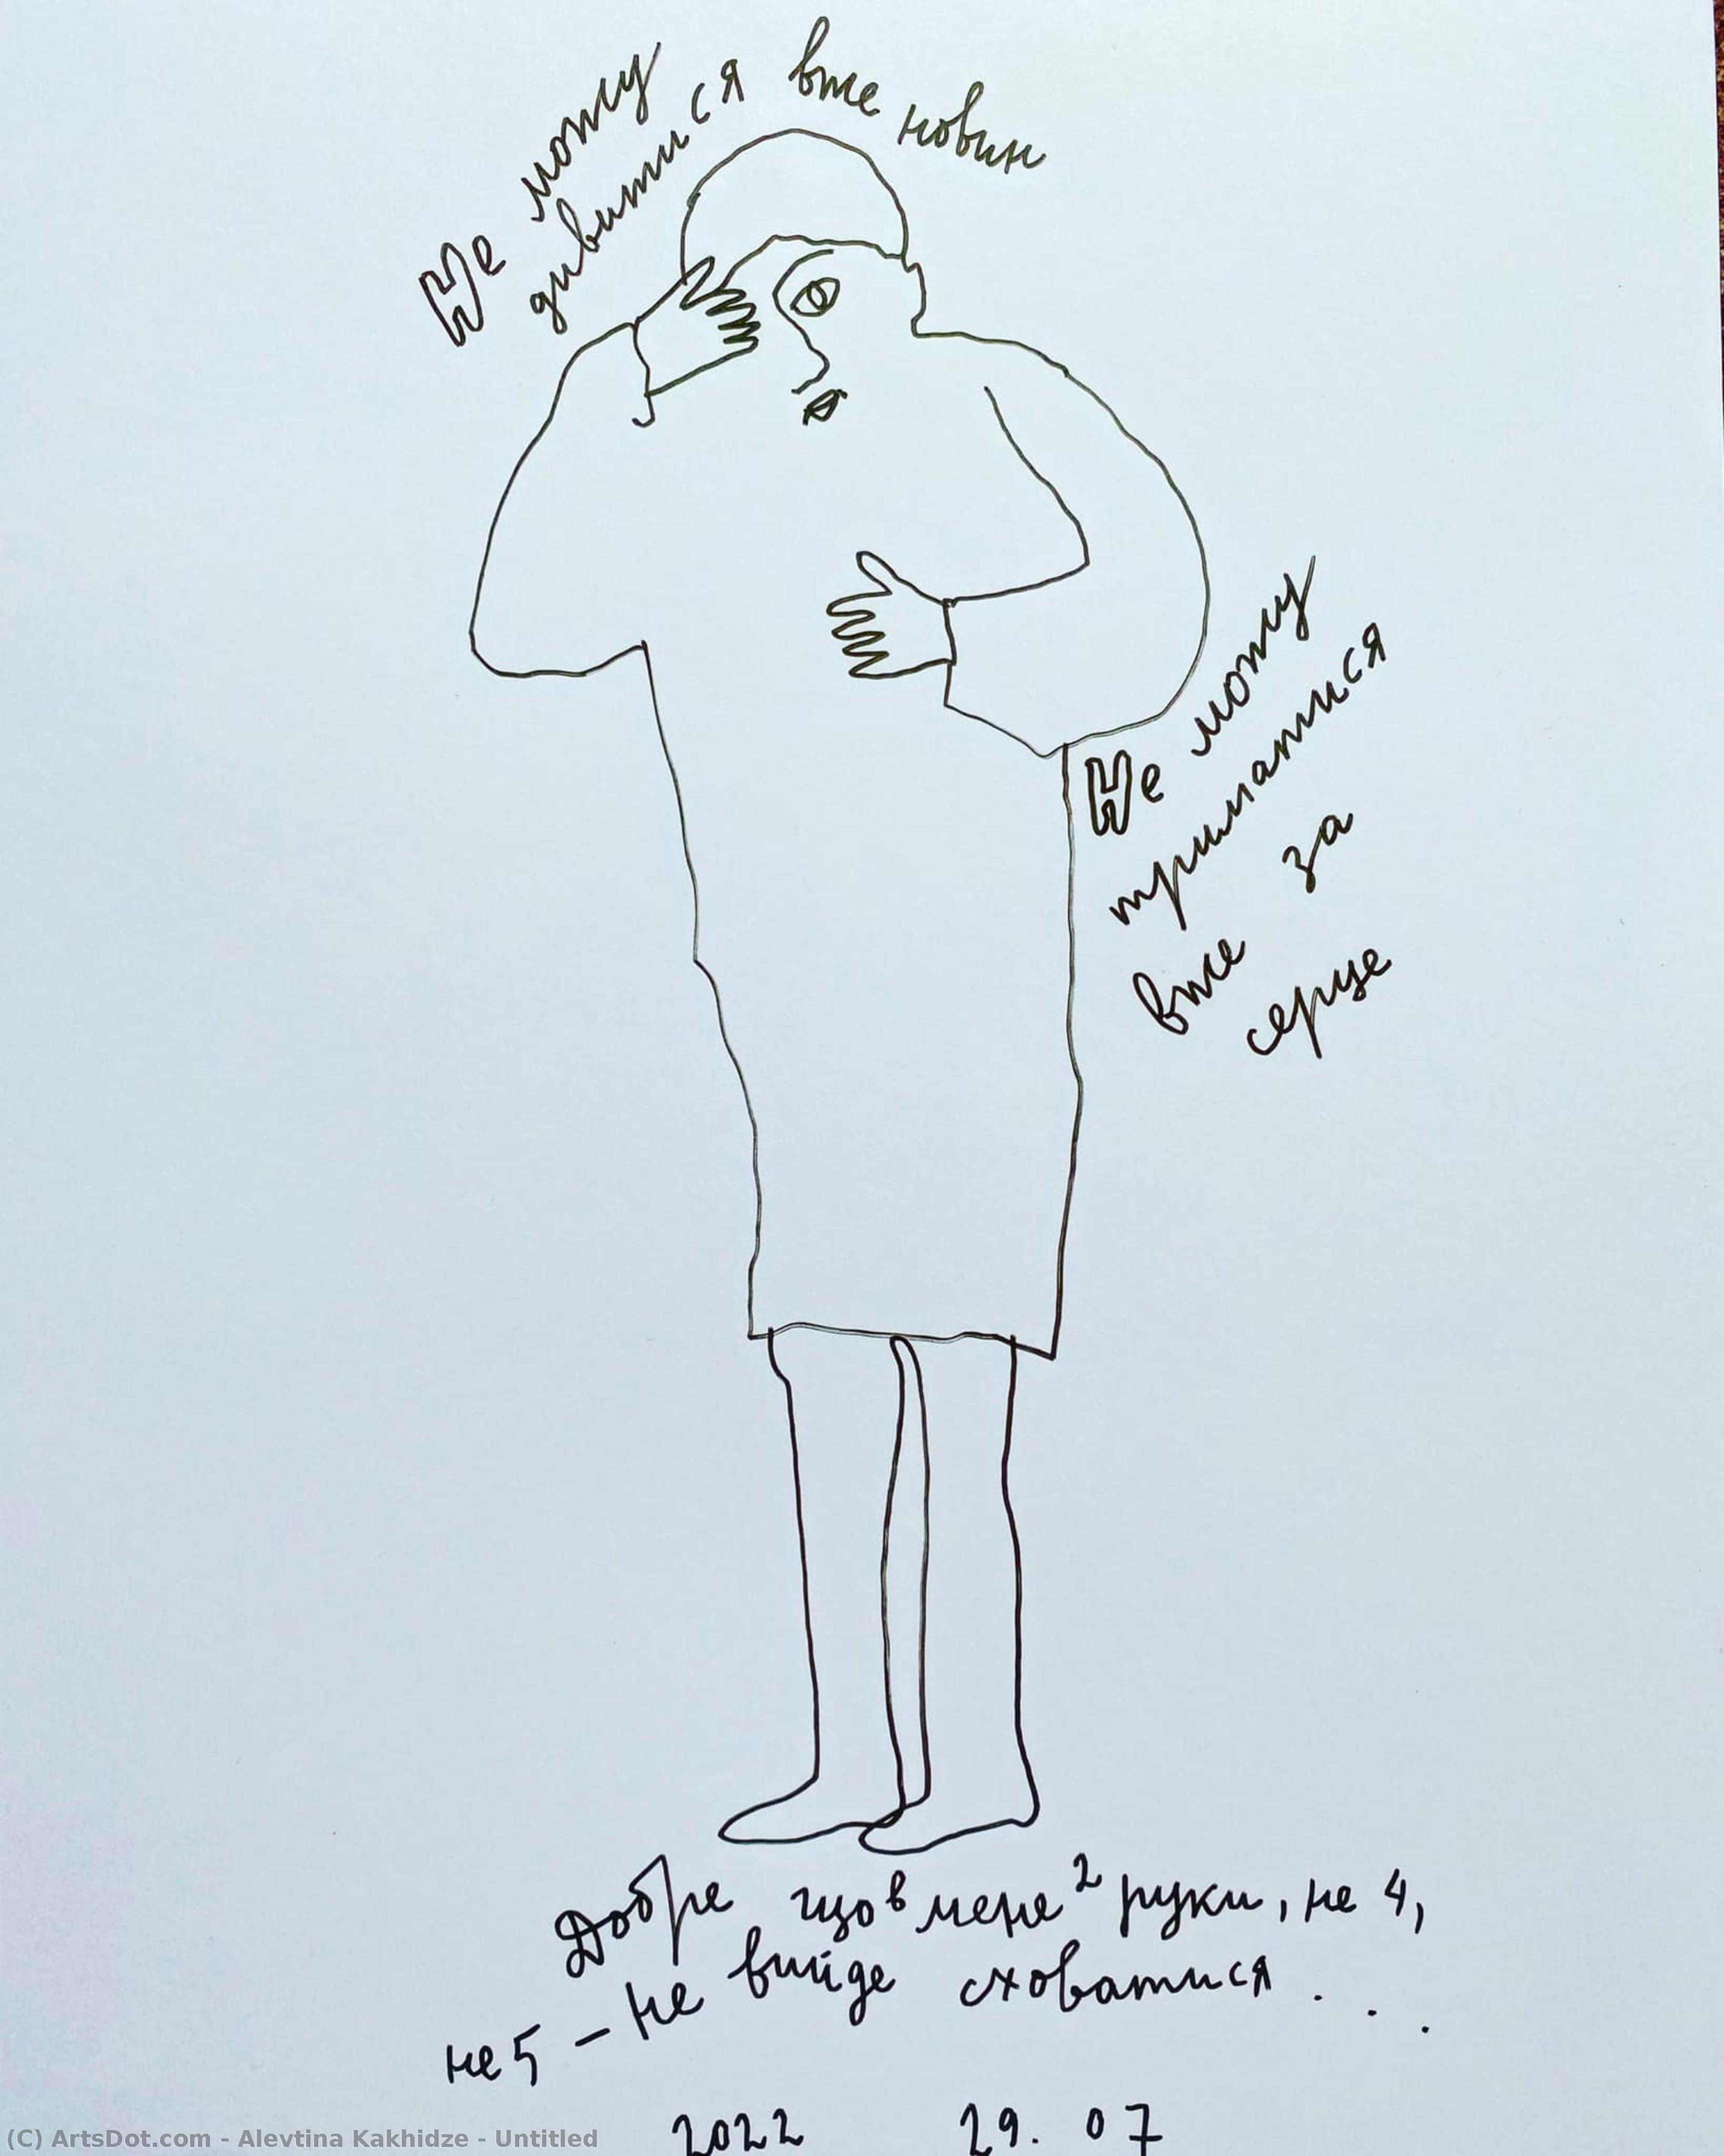 Не можу
дивитися вже новин
Не можу
триматися
вже за
серце
Добре що в мене 2 руки, не 4,
не 5 – не вийде сховатися...
2022 29. 07
(C) ArtsDot.com - Alevtina Kakhidze - Untitled